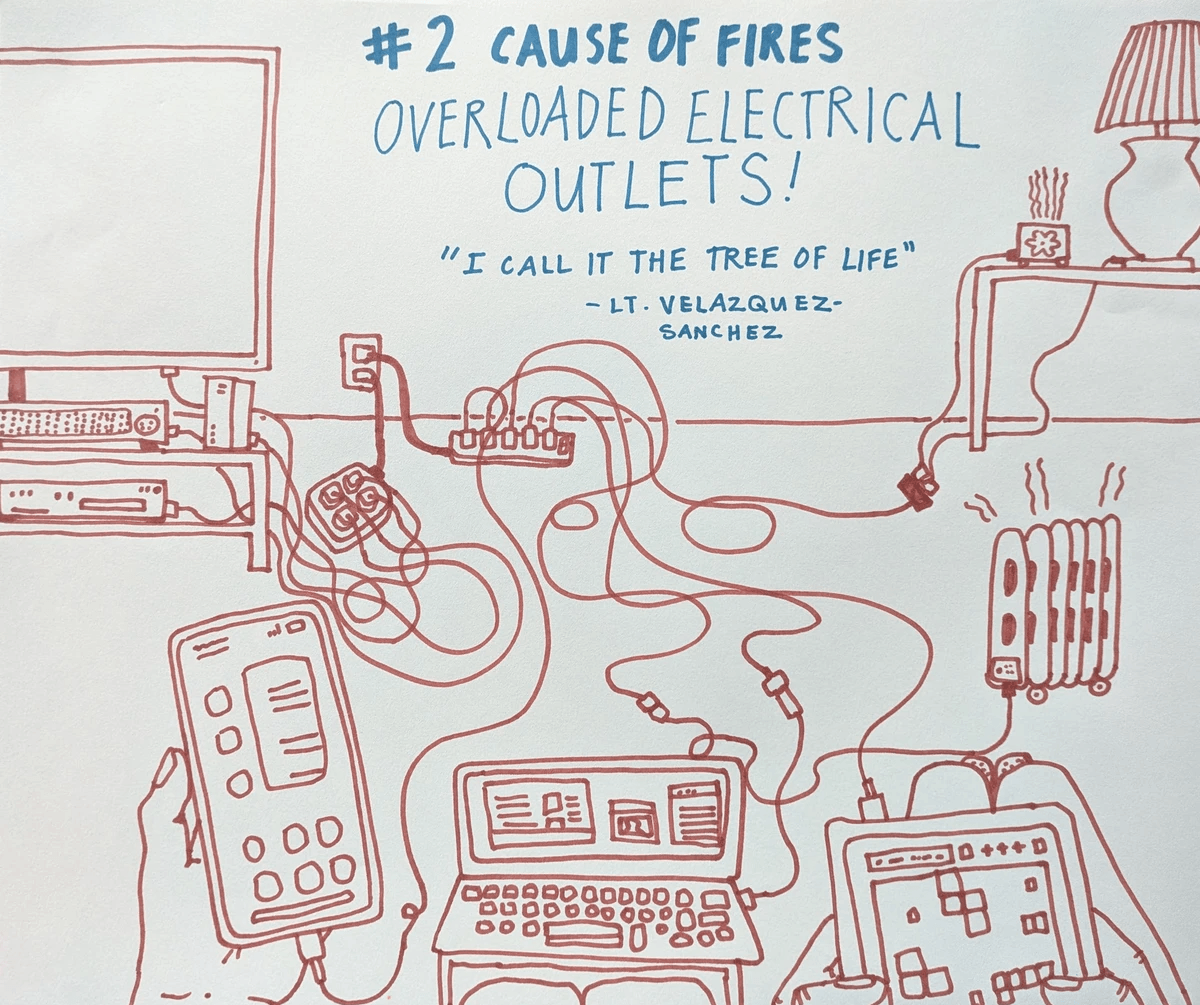 #2 CAUSE OF FIRES
OVERLOADED ELECTRICAL
OUTLETS!
"I CALL IT THE TREE OF LIFE"
- LT. VELAZQUEZ-
SANCHEZ